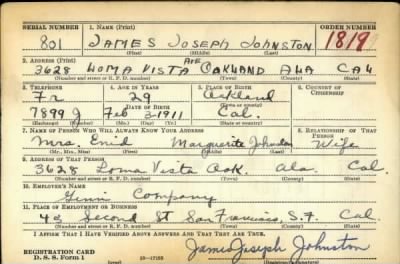 SERIAL NUMBER 1. NAME (Print) ORDER NUMBER
801 JAMES JOSEPH JOHNSTON 1819
(First) (Middle) (Last)
2. ADDRESS (Print) AVE
3628 LOMA VISTA OAKLAND ALA CAL
(Number and street or R. F. D. number) (Town) (County) (State)
3. TELEPHONE 4. AGE IN YEARS 5. PLACE OF BIRTH 6. COUNTRY OF CITIZENSHIP
Fr 29 Oakland
DATE OF BIRTH (Town or county)
7899 J Feb 3-1911 Cal.
(Exchange) (Number) (Mo.) (Day) (Yr.) (State or country)
7. NAME OF PERSON WHO WILL ALWAYS KNOW YOUR ADDRESS 8. RELATIONSHIP OF THAT PERSON
Mrs. Enid Marguerite Johnston Wife
(Mr., Mrs., Miss) (First) (Middle) (Last)
9. ADDRESS OF THAT PERSON
3628 Loma Vista Oak. Ala. Cal.
(Number and street or R. F. D. number) (Town) (County) (State)
10. EMPLOYER'S NAME
Ginn Company
11. PLACE OF EMPLOYMENT OR BUSINESS
45 Second St San Francisco, S.F. Cal.
(Number and street or R. F. D. number) (Town) (County) (State)
I AFFIRM THAT I HAVE VERIFIED ABOVE ANSWERS AND THAT THEY ARE TRUE.
REGISTRATION CARD
D. S. S. Form 1 James Joseph Johnston